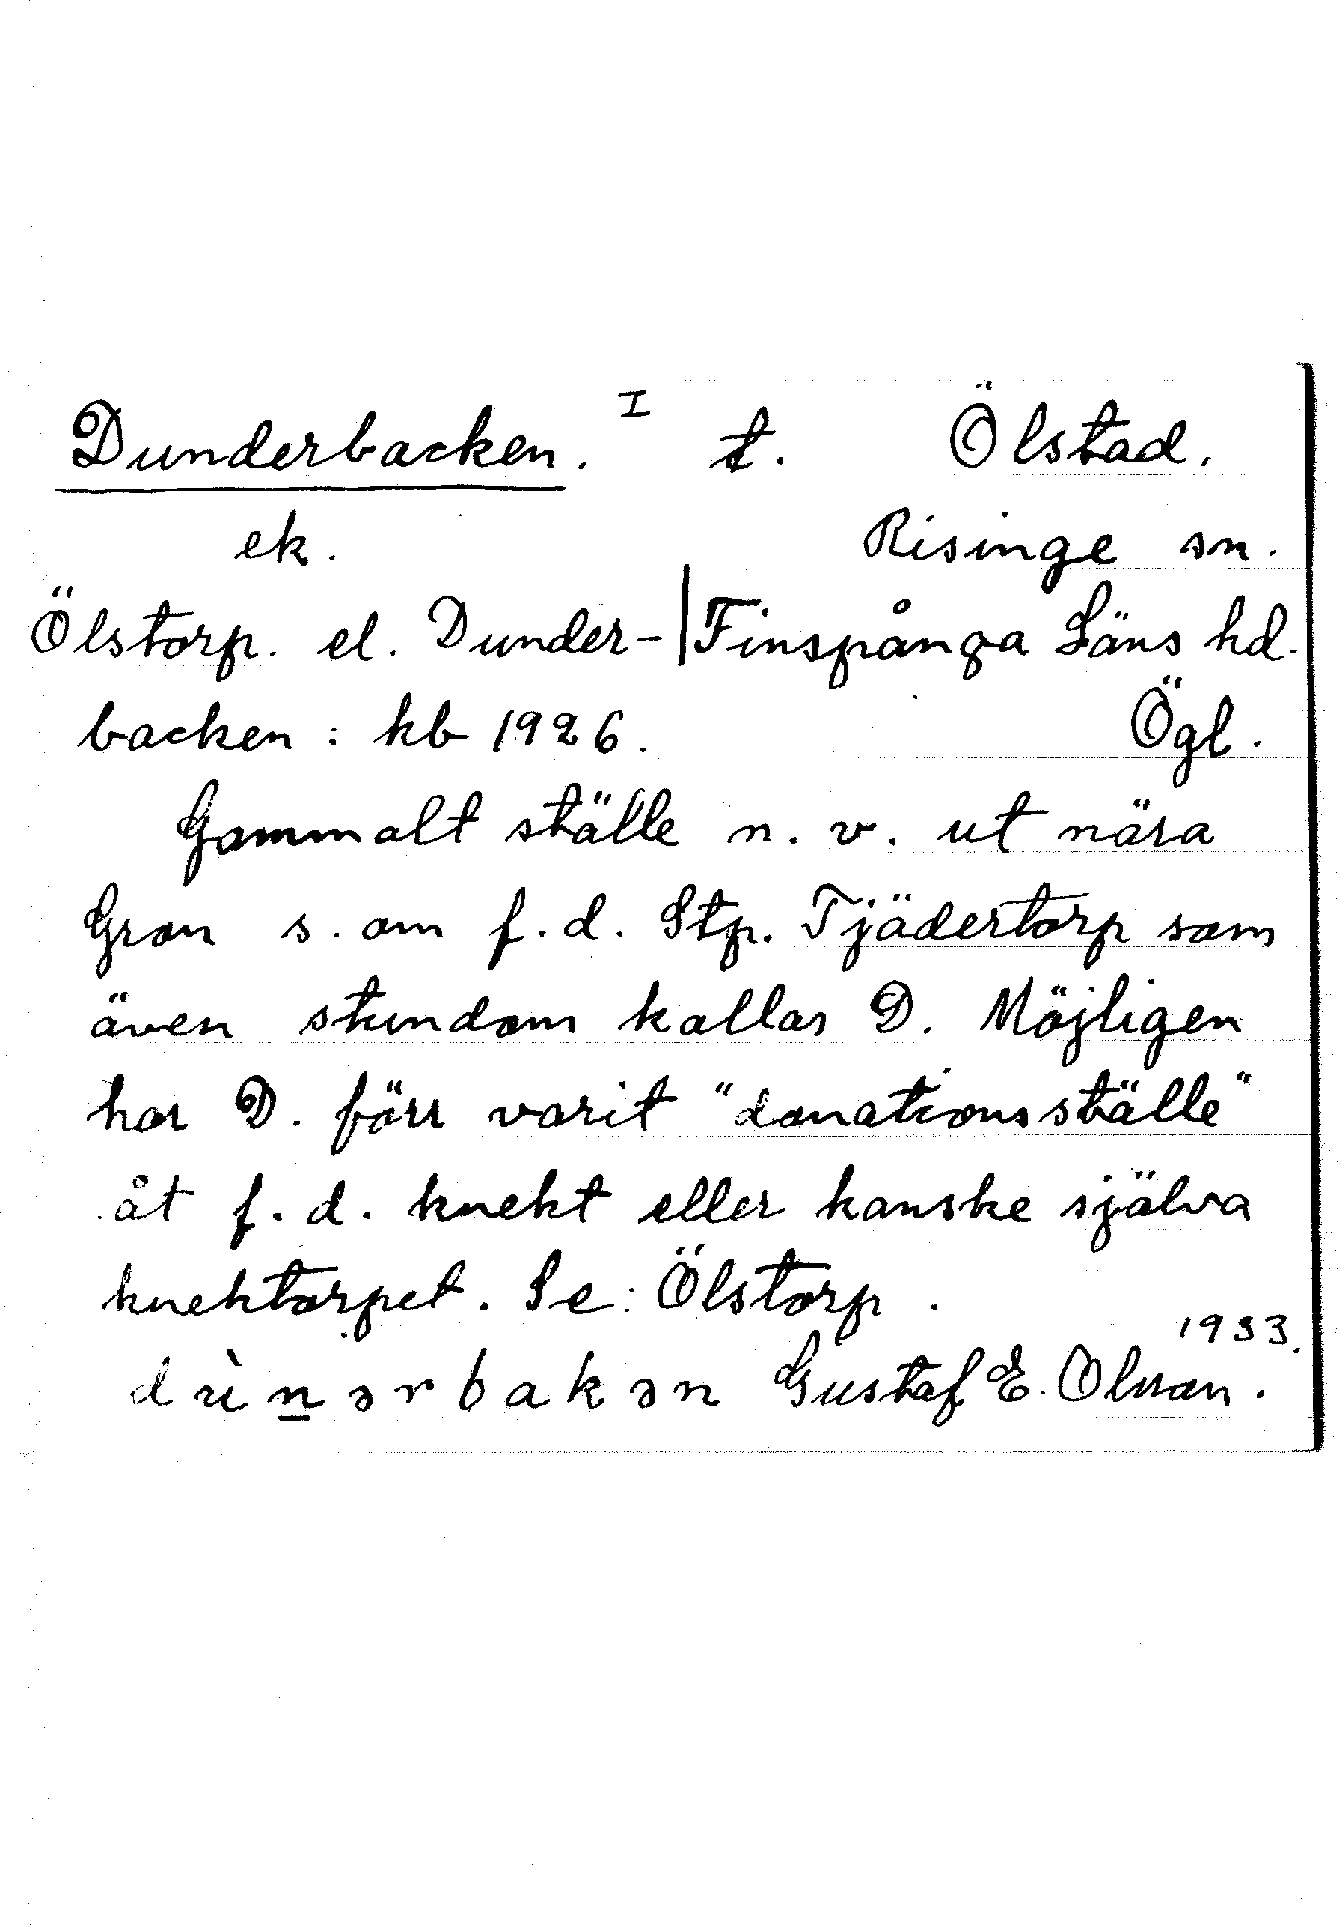 Dunderbacken. I t. Ölstad.
ek. Risinge sn.
Ölstorp. el. Dunder-|Finspånga Läns hd.
backen : kb 1926. Ögl.
Gammalt ställe n. v. ut nära
Gran s. om f. d. Stp. Tjädertorp som
även stundom kallas D. Möjligen
har D. förr varit "donationsställe"
åt f. d. knekt eller kanske själva
knektorpet. Se: Ölstorp.
1933.
dùn̲ərbakən Gustaf E. Olsson.